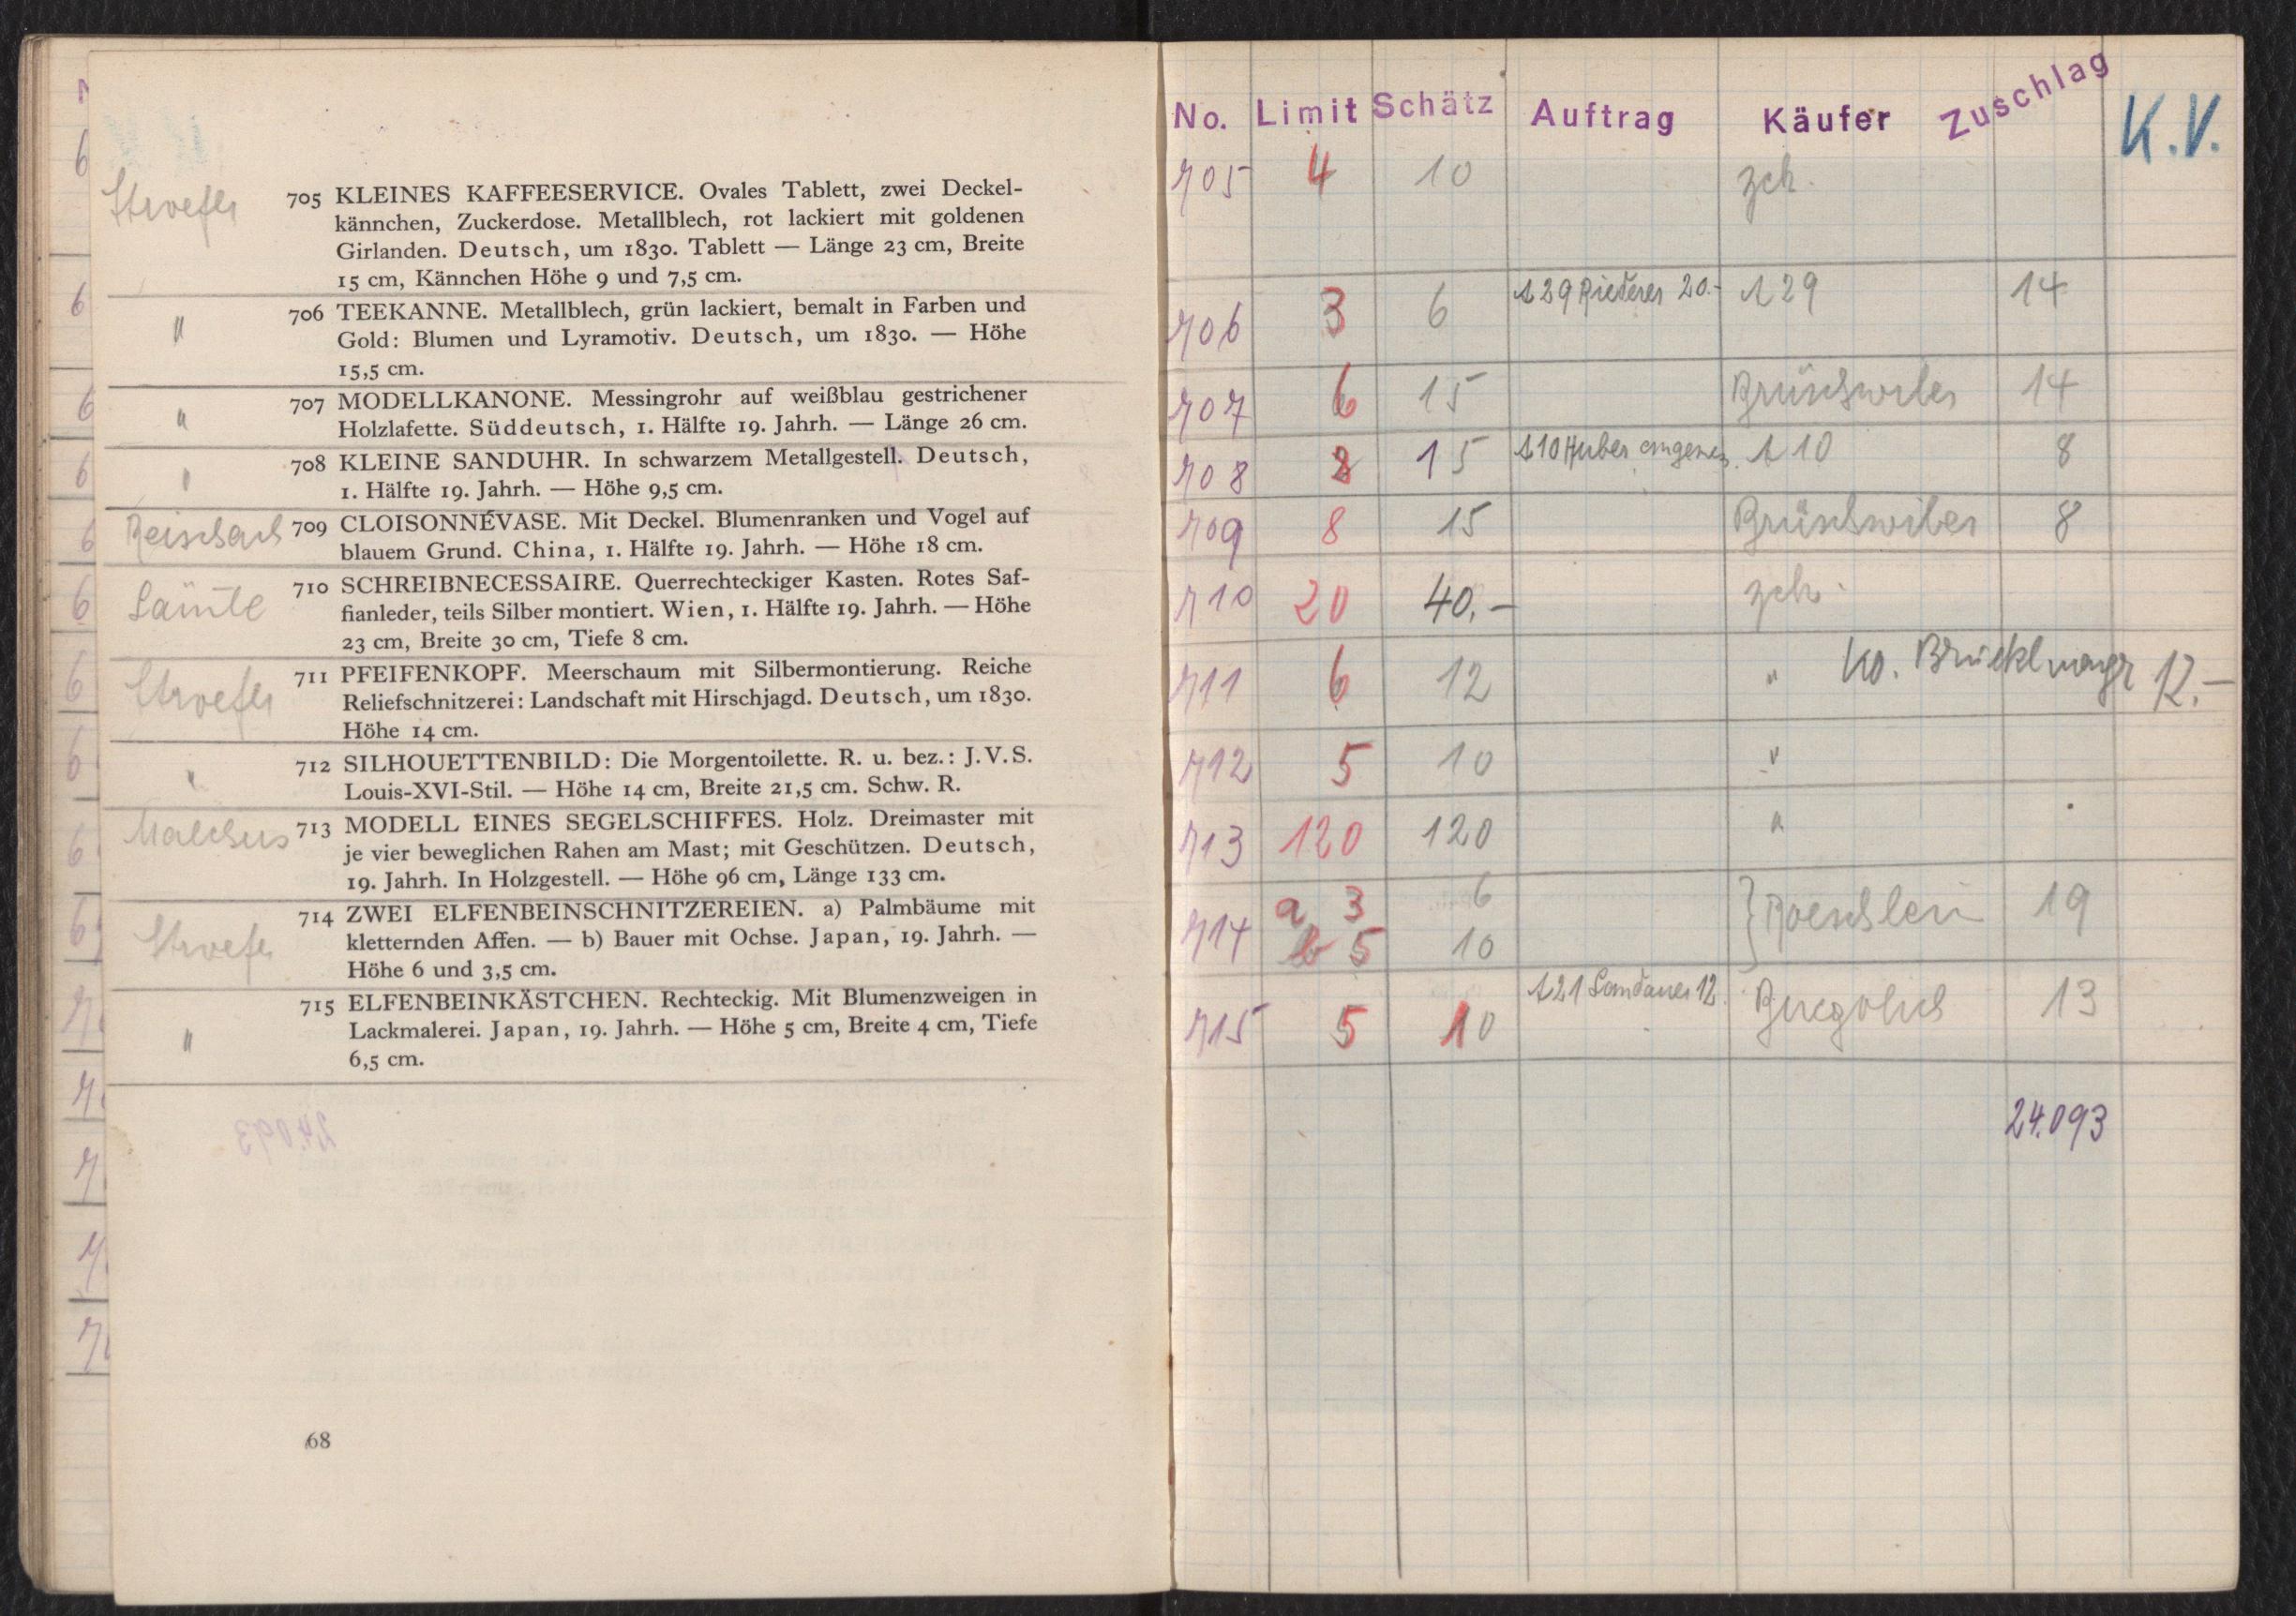 Stroefer
705 KLEINES KAFFEESERVICE. Ovales Tablett, zwei Deckel-
kännchen, Zuckerdose. Metallblech, rot lackiert mit goldenen
Girlanden. Deutsch, um 1830. Tablett — Länge 23 cm, Breite
15 cm, Kännchen Höhe 9 und 7,5 cm.
" 706 TEEKANNE. Metallblech, grün lackiert, bemalt in Farben und
Gold: Blumen und Lyramotiv. Deutsch, um 1830. — Höhe
15,5 cm.
" 707 MODELLKANONE. Messingrohr auf weißblau gestrichener
Holzlafette. Süddeutsch, 1. Hälfte 19. Jahrh. — Länge 26 cm.
" 708 KLEINE SANDUHR. In schwarzem Metallgestell. Deutsch,
1. Hälfte 19. Jahrh. — Höhe 9,5 cm.
Reischach 709 CLOISONNÉVASE. Mit Deckel. Blumenranken und Vogel auf
blauem Grund. China, 1. Hälfte 19. Jahrh. — Höhe 18 cm.
710 SCHREIBNECESSAIRE. Querrechteckiger Kasten. Rotes Saf-
fianleder, teils Silber montiert. Wien, 1. Hälfte 19. Jahrh. — Höhe
23 cm, Breite 30 cm, Tiefe 8 cm.
Stroefer 711 PFEIFENKOPF. Meerschaum mit Silbermontierung. Reiche
Reliefschnitzerei: Landschaft mit Hirschjagd. Deutsch, um 1830.
Höhe 14 cm.
" 712 SILHOUETTENBILD: Die Morgentoilette. R. u. bez.: J.V.S.
Louis-XVI-Stil. — Höhe 14 cm, Breite 21,5 cm. Schw. R.
Malchus 713 MODELL EINES SEGELSCHIFFES. Holz. Dreimaster mit
je vier beweglichen Rahen am Mast; mit Geschützen. Deutsch,
19. Jahrh. In Holzgestell. — Höhe 96 cm, Länge 133 cm.
Stroefer 714 ZWEI ELFENBEINSCHNITZEREIEN. a) Palmbäume mit
kletternden Affen. — b) Bauer mit Ochse. Japan, 19. Jahrh. —
Höhe 6 und 3,5 cm.
" 715 ELFENBEINKÄSTCHEN. Rechteckig. Mit Blumenzweigen in
Lackmalerei. Japan, 19. Jahrh. — Höhe 5 cm, Breite 4 cm, Tiefe
6,5 cm.
68
No. Limit Schätz Auftrag Käufer Zuschlag K.V.
705 4 10 zch.
706 3 6 A29 Riederer 20.- A29 14
707 6 15 Brüschwiler 14
708 2 15 A10 Huber A10 8
709 8 15 Brüschwiler 8
710 20 40.- zch.
711 6 12 " Ko. Brücklmayr 12.-
712 5 10 "
713 120 120 "
714 a 3 6 } Roeschlein 19
b 5 10
715 5 10 A21 Landauer 12. 13
24.093